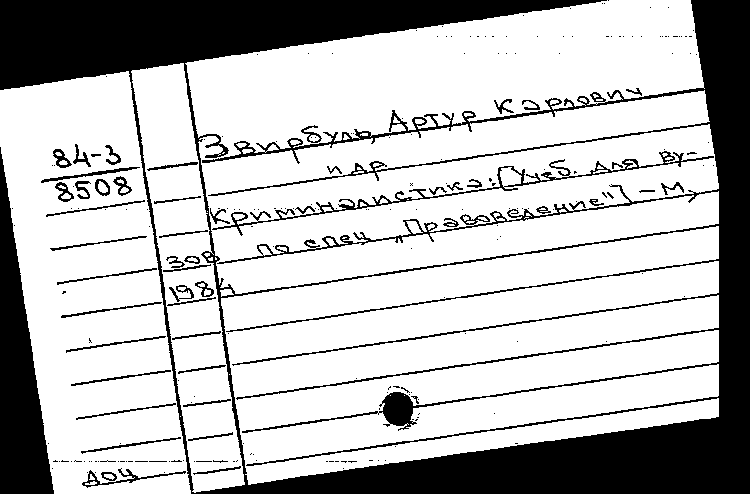 84-3
8508
Звирбуль, Артур Карлович
и др
Криминалистика: [Учеб. для ву-
зов по спец „Правоведение"] – М,
1984
доц